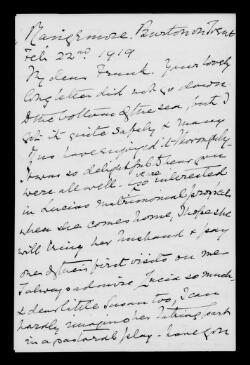 Rangemore. Burton on Trent
Feb 22nd 1919
My dear Frank. Your lovely
long letter did not go down
to the bottom of the sea, but I
got it quite safely & many
I was so delighted to hear you
were all well. interested
in Lucia's matrimonial prospects
when she comes home, I hope she
will bring her husband & pay
one of their first visits on me
I always admire Lucia so much
& dear little Susan too, I can
hardly imagine her taking part
in a pastoral play. have you